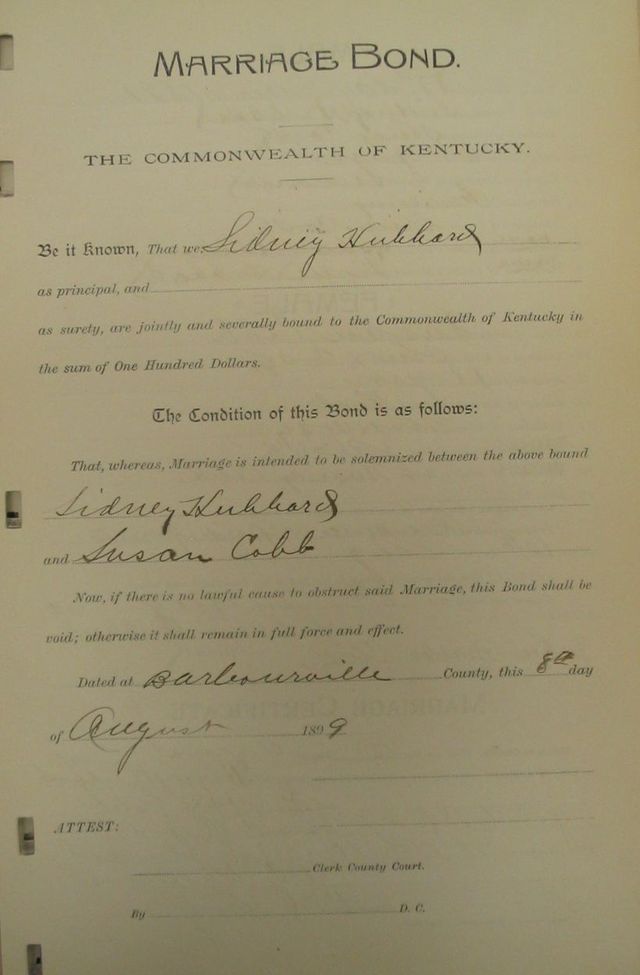 MARRIAGE BOND.
THE COMMONWEALTH OF KENTUCKY.
Be it Known, That we, Sidney Hubbard
as principal, and
as surety, are jointly and severally bound to the Commonwealth of Kentucky in
the sum of One Hundred Dollars.
The Condition of this Bond is as follows:
That, whereas, Marriage is intended to be solemnized between the above bound
Sidney Hubbard
and Susan Cobb
Now, if there is no lawful cause to obstruct said Marriage, this Bond shall be
void; otherwise it shall remain in full force and effect.
Dated at Barbourville County, this 8th day
of August 1899
ATTEST:
Clerk County Court.
By D. C.